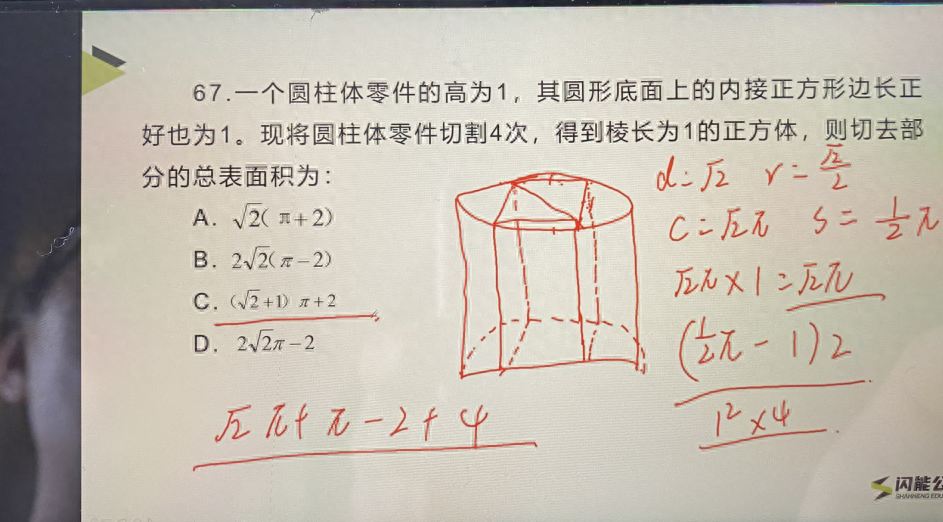 67.一个圆柱体零件的高为1，其圆形底面上的内接正方形边长正
好也为1。现将圆柱体零件切割4次，得到棱长为1的正方体，则切去部
分的总表面积为：
A. √2( π+2)
B. 2√2(π-2)
C. (√2+1) π+2
D. 2√2π-2
d=√2 r=√2/2
C=√2π S=1/2π
√2π×1=√2π
(1/2π-1)2
1²×4
√2π+π-2+4
闪能公
SHANNENG EDU